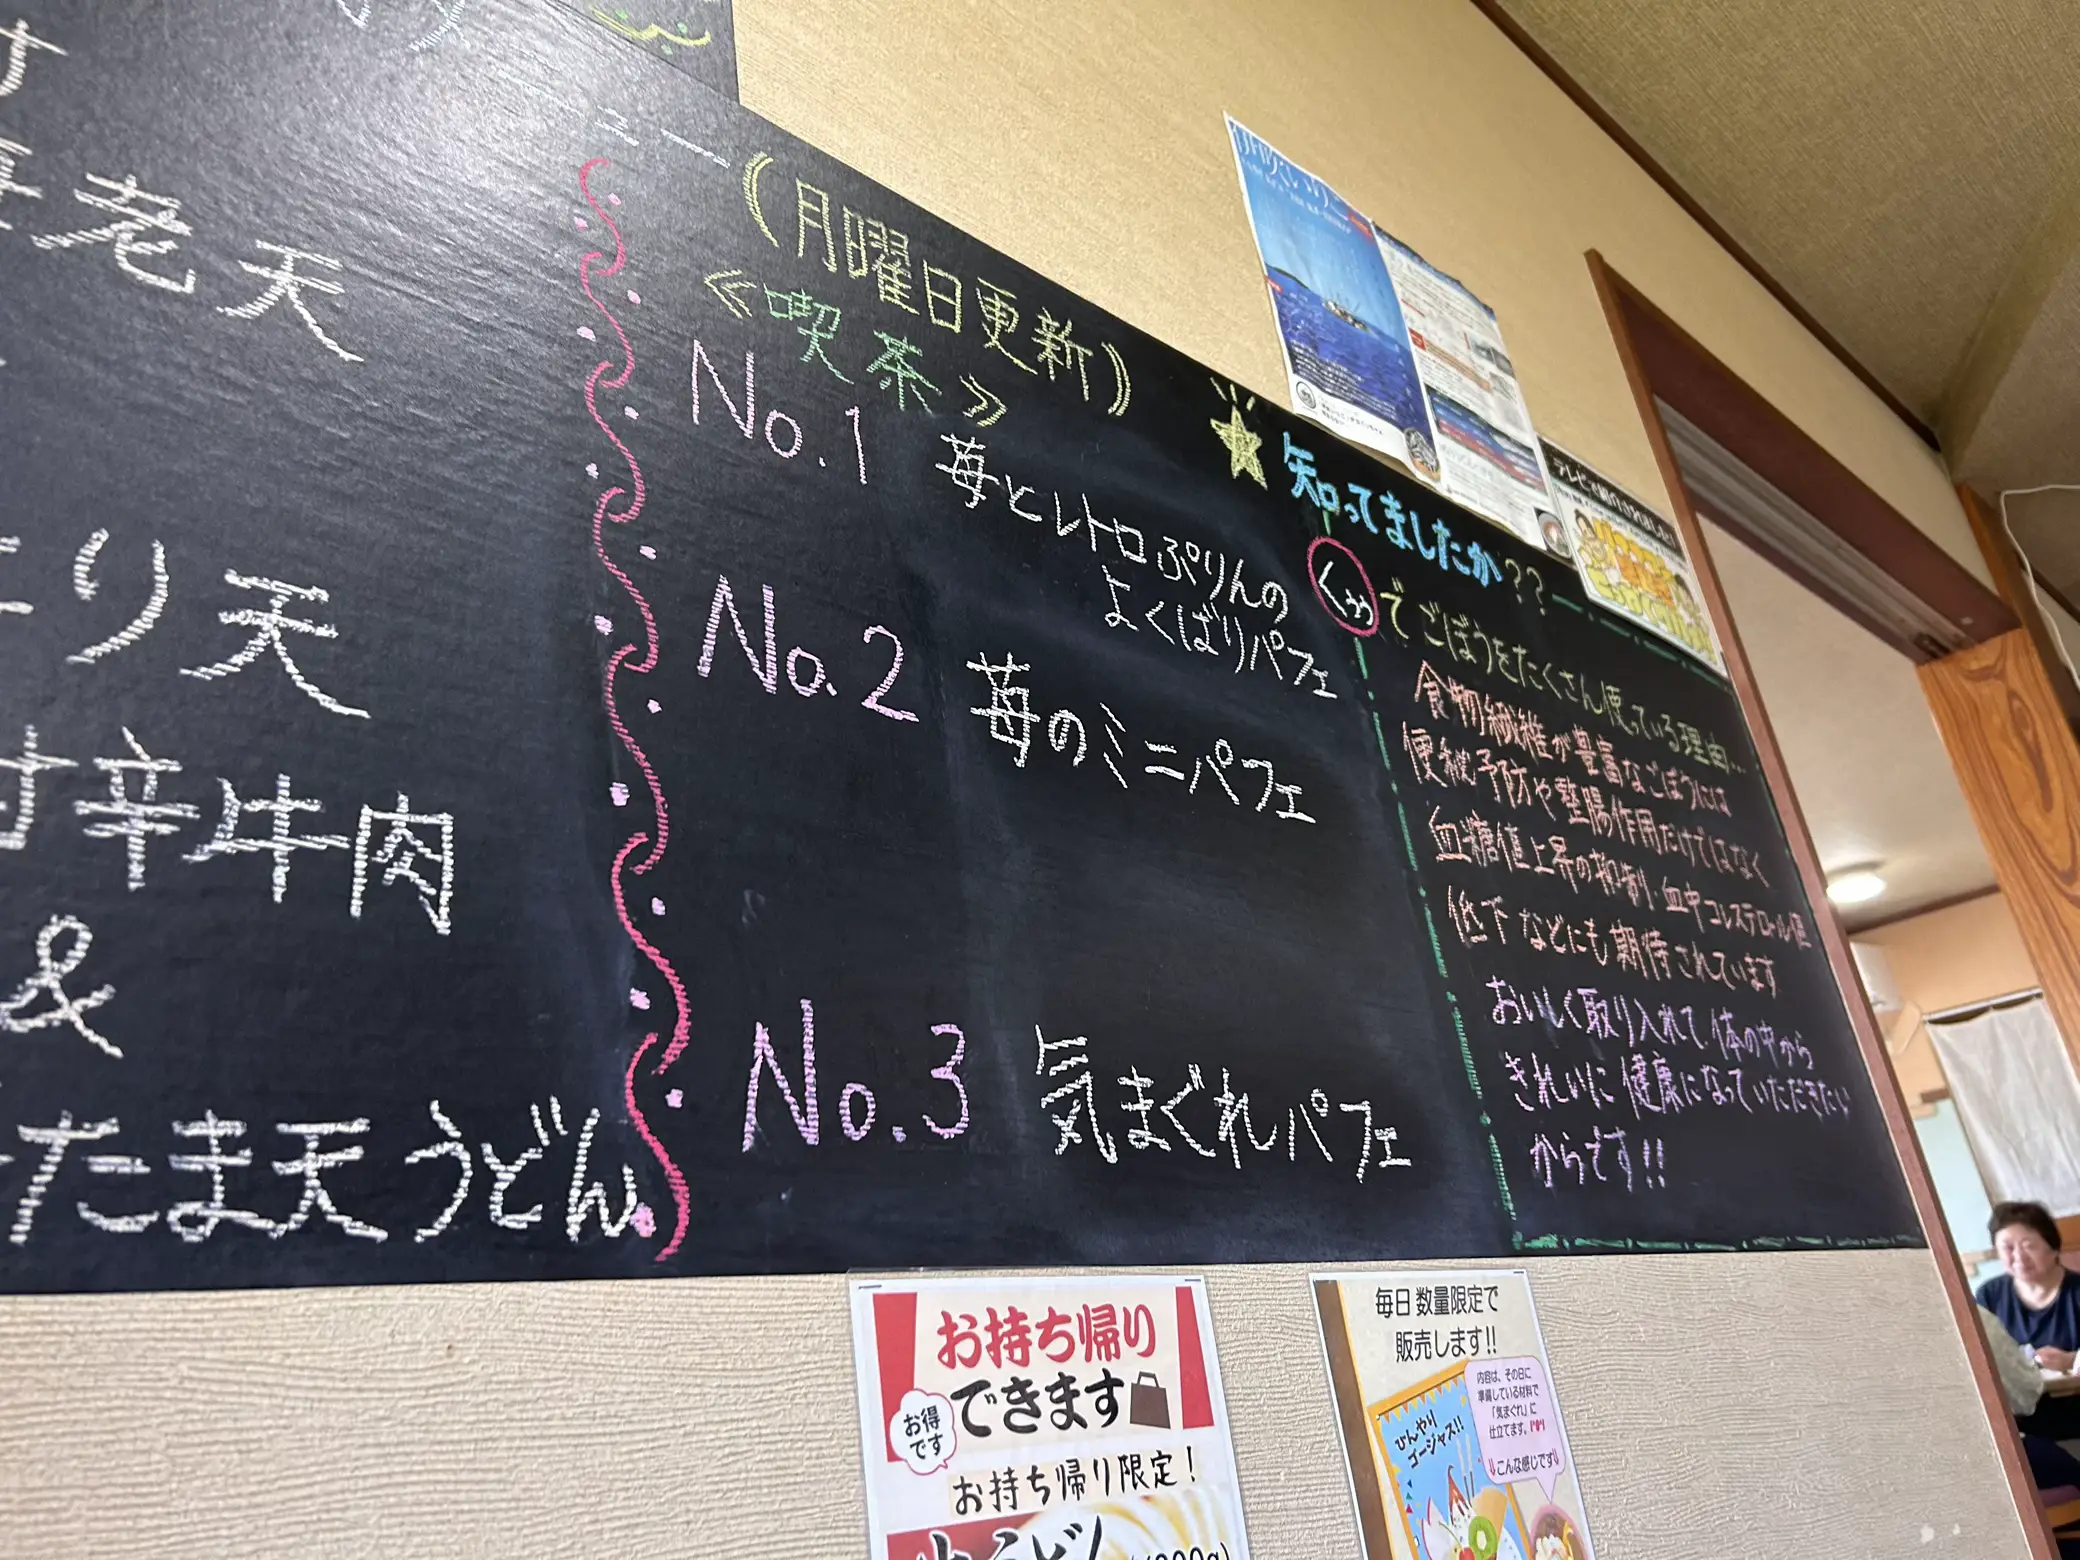 老天
り天
甘辛牛肉
&
たま天うどん
(月曜日更新)
≪喫茶≫
No.1 苺とレトロぷりんの
よくばりパフェ
No.2 苺のミニパフェ
No.3 気まぐれパフェ
知ってましたか??
でごぼうをたくさん使っている理由...
食物繊維が豊富なごぼうには
便秘予防や整腸作用だけではなく
血糖値上昇の抑制・血中コレステロール値
低下などにも期待されています
おいしく取り入れて体の中から
きれいに健康になっていただきたい
からです!!
お持ち帰り
できます
お得
です
お持ち帰り限定!
毎日数量限定で
販売します!!
内容は、その日に
準備している材料で
「気まぐれ」に
仕立てます。
⇓こんな感じです⇓
ひんやり
ゴージャス!!